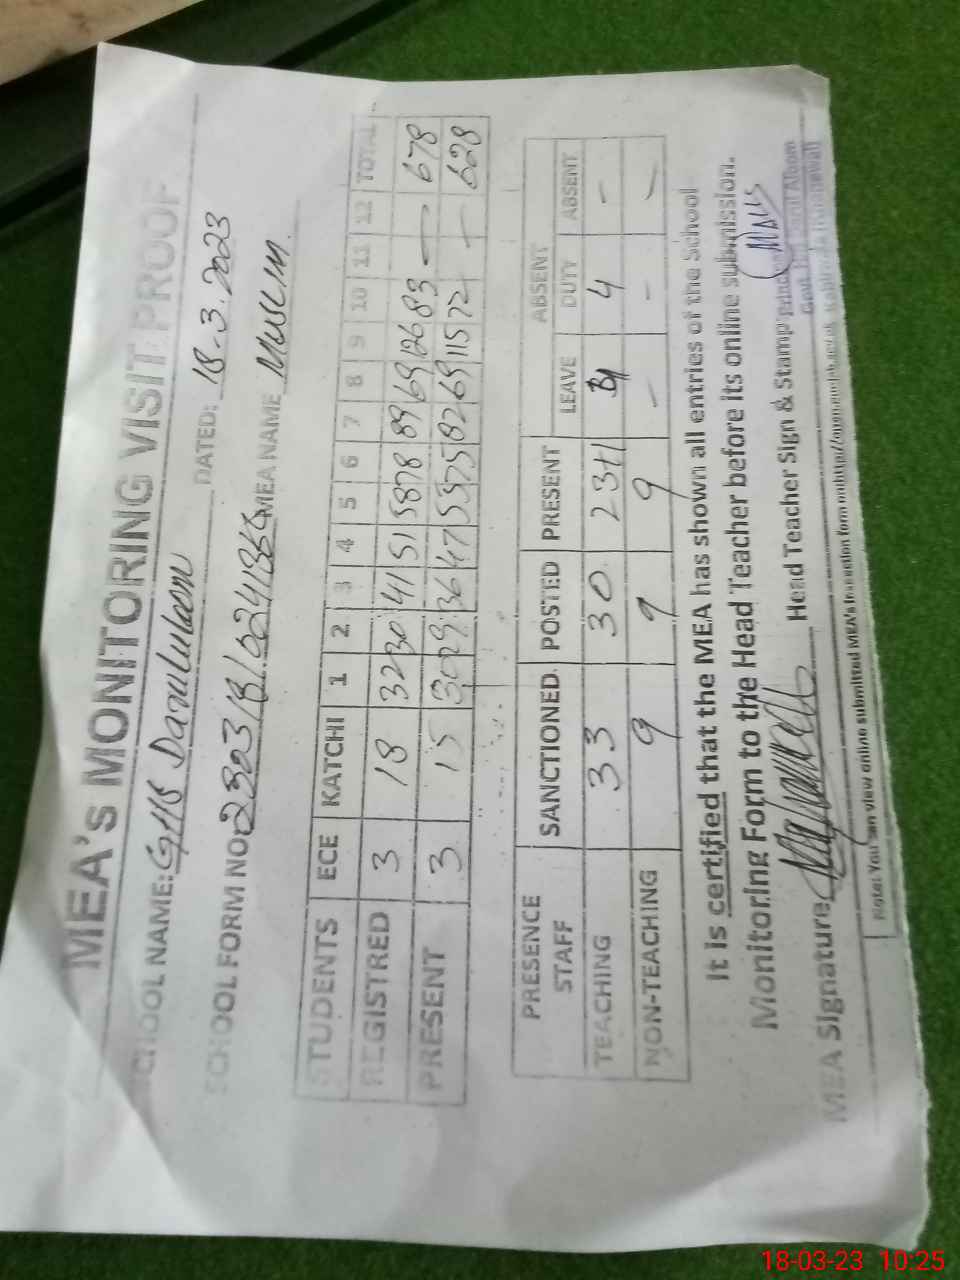 MEA's MONITORING VISIT PROOF
SCHOOL NAME: GHS Darululoom DATED: 18.3.2023
SCHOOL FORM NO: MEA NAME MUSLIM
STUDENTS ECE KATCHI 1 2 3 4 5 6 7 8 9 10 11 12 TOTAL
REGISTRED 3 18 32 30 41 51 58 78 89 69 126 83 — — 678
PRESENT 3 15 30 29 36 47 53 75 82 69 115 72 — 628
PRESENCE STAFF SANCTIONED POSTED PRESENT ABSENT
LEAVE DUTY ABSENT
TEACHING 33 30 23+1 4 -
NON-TEACHING 9 9 9 - - -
It is certified that the MEA has shown all entries of the School
Monitoring Form to the Head Teacher before its online submission.
MEA Signature Head Teacher Sign & Stamp
Note: You can view online submitted MEA's
18-03-23 10:25